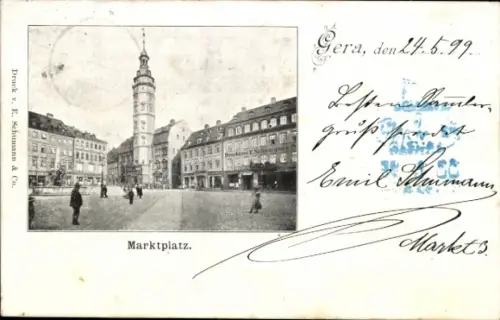 Druck v. E. Schumann & Co.
Gera, den 24.5.99.
Besten
gruß sendet
Emil Schumann
Markt 3.
Marktplatz.